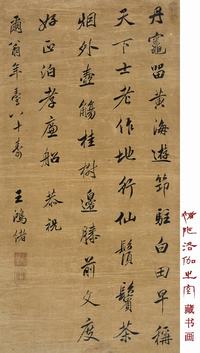 丹竈留黃海遊筇駐白田早稱
天下士老作地行仙鬚鬢茶
烟外壺觴桂樹邊膝前文度
好正泊孝廉船恭祝
爾翁年臺八十壽
王鴻緒
陀洛伽室
藏书画